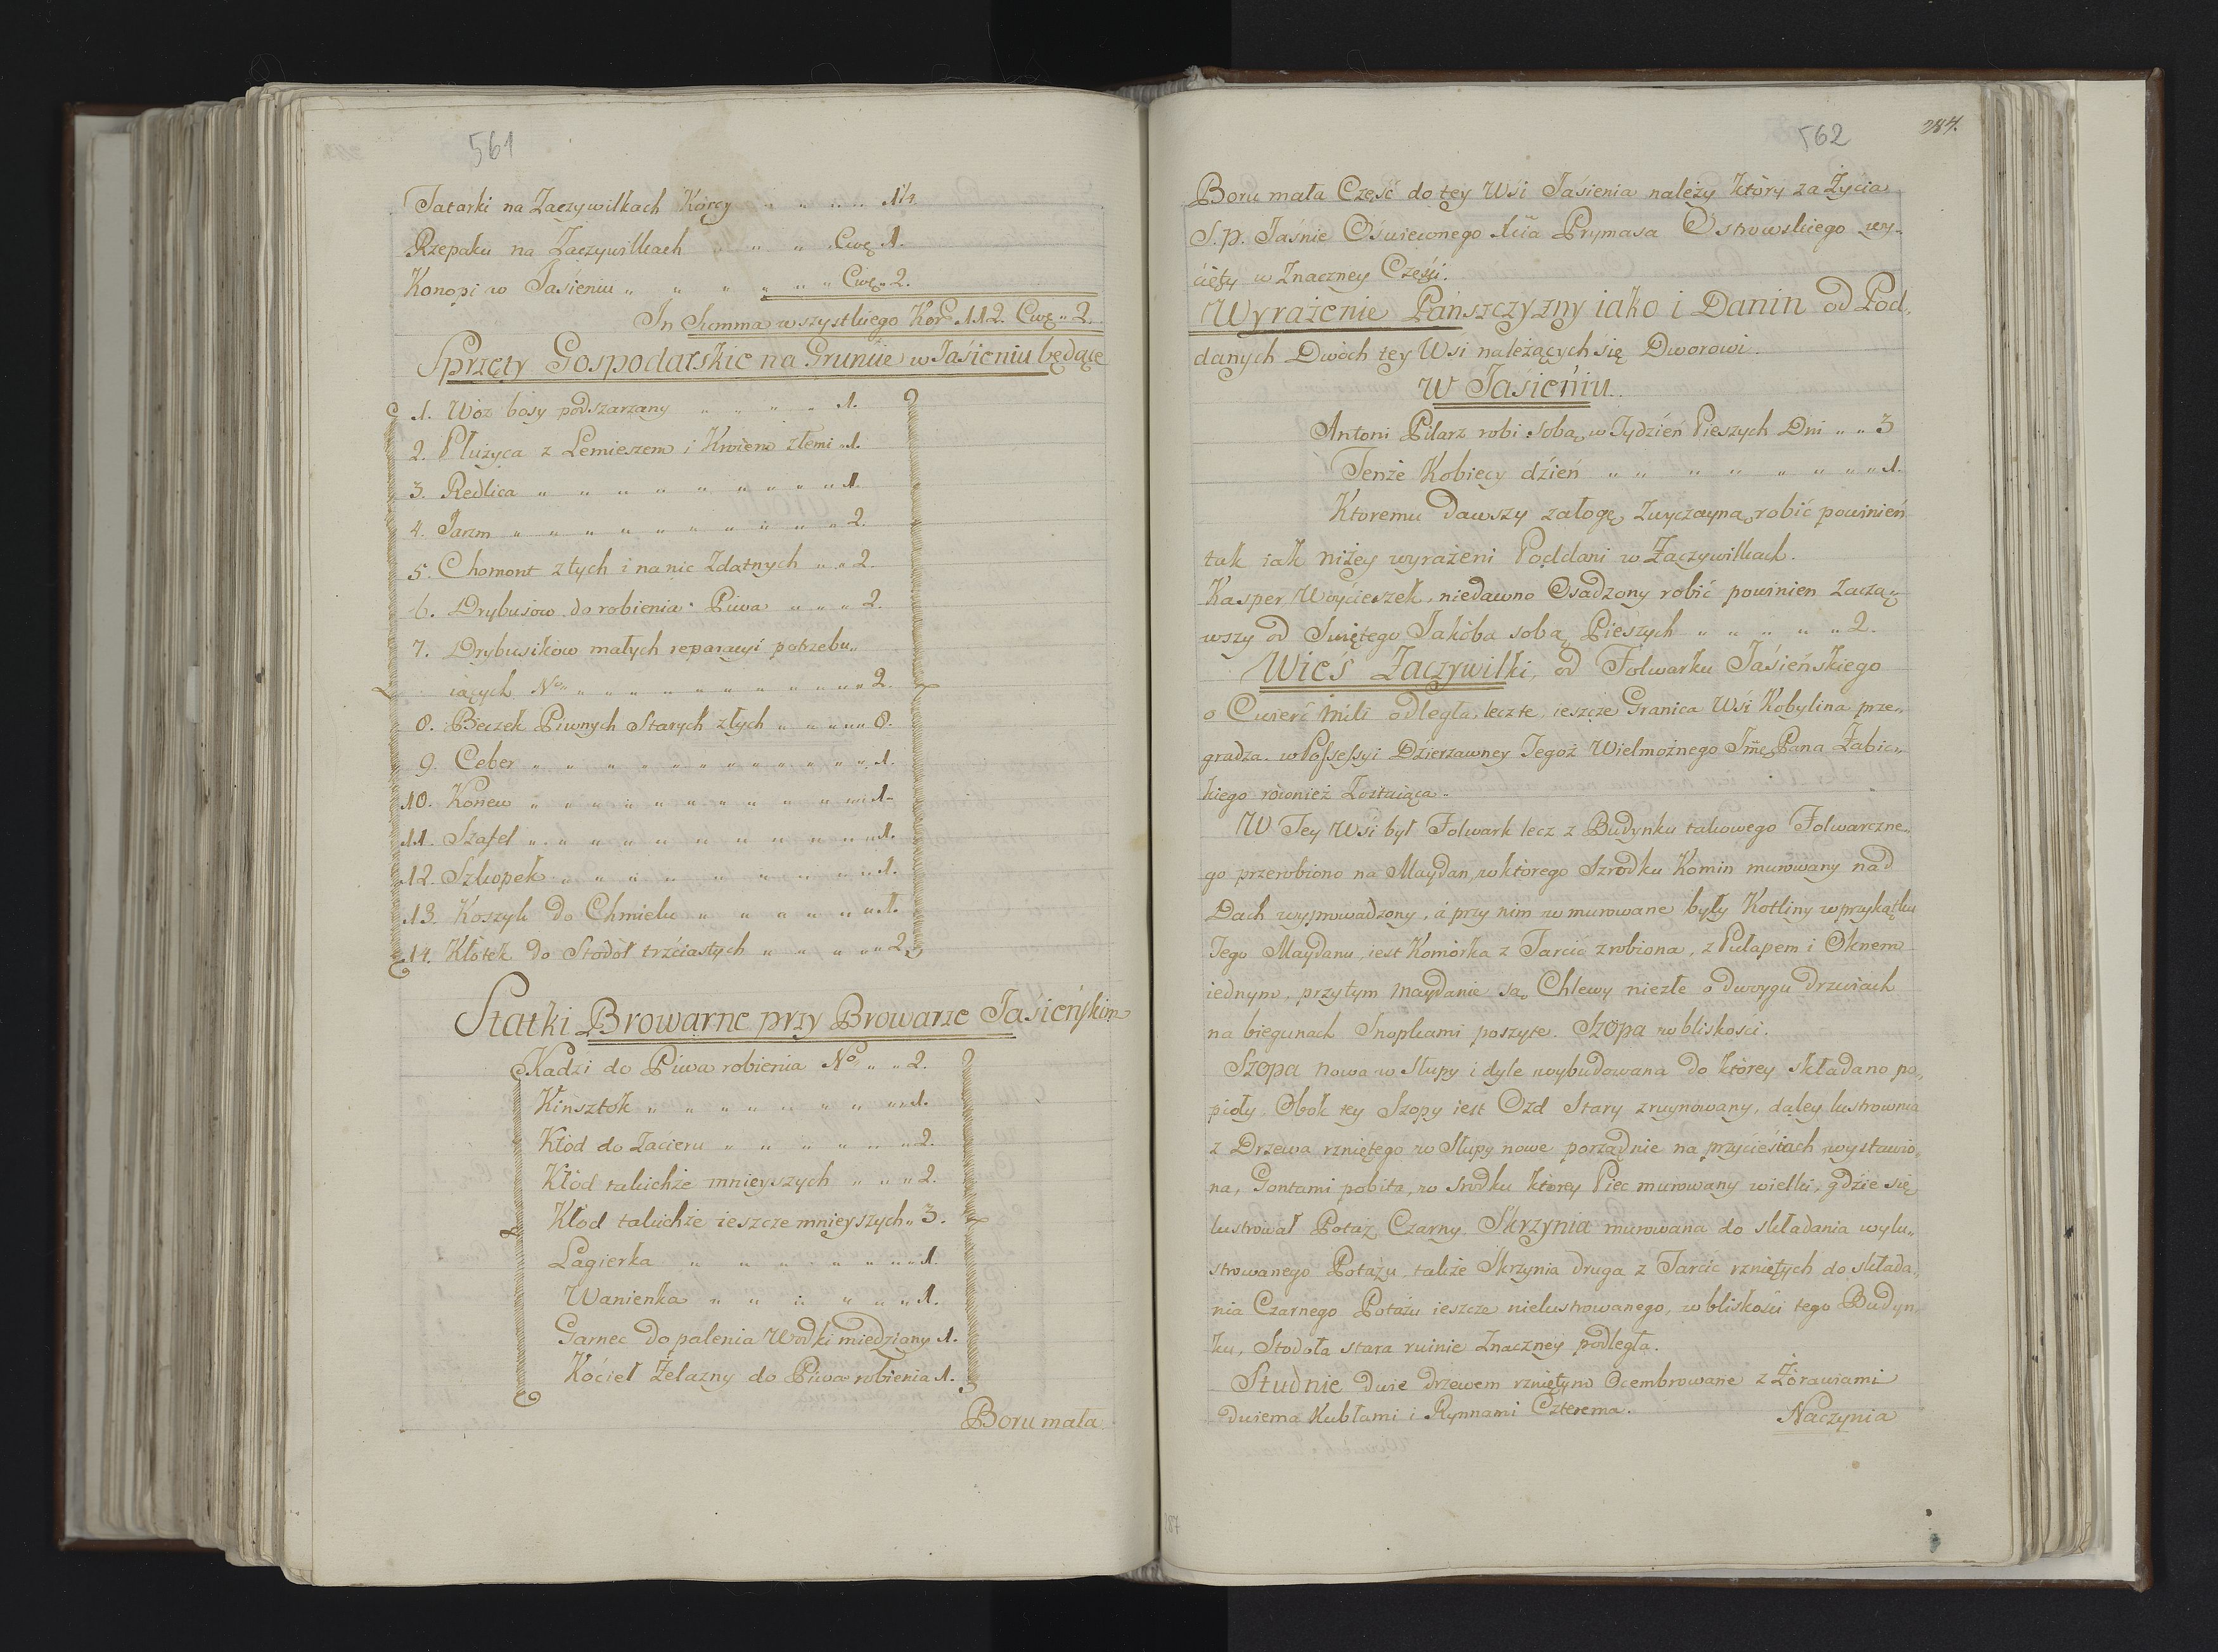 561
Tatarki na Zaczywilkach Korcy „ „ „ „ 14.
Rzepaku na Zaczywilkach „ „ „ Cwę 1.
Konopi w Jasieniu „ „ „ „ „ „ Cwę „ 2.
In Summa wszystkiego Kor: 112. Cwę „ 2.
Sprzęty Gospodarskie na Gruncie w Jasieniu będące
1. Woz bosy podszarzany „ „ „ „ 1.
2. Płużyca z Lemieszem i Kroiem złemi „ 1.
3. Redlica „ „ „ „ „ „ „ „ „ 1.
4. Jarzm „ „ „ „ „ „ „ „ „ „ 2.
5. Chomont złych i na nic Zdatnych „ „ 2.
6. Drybusow do robienia Piwa „ „ „ 2.
7. Drybusikow małych reparacyi potrzebu„
iących No „ „ „ „ „ „ „ „ „ „ „ 2.
8. Beczek Piwnych Starych złych „ „ „ „ 8.
9. Ceber „ „ „ „ „ „ „ „ „ „ „ 1.
10. Konew „ „ „ „ „ „ „ „ „ „ „ 1.
11. Szafel „ „ „ „ „ „ „ „ „ „ „ 1.
12. Szkopek „ „ „ „ „ „ „ „ „ „ 1.
13. Koszyk do Chmielu „ „ „ „ „ „ 1.
14. Kłótek do Stodoł trzciastych „ „ „ „ „ 2.
Statki Browarne przy Browarze Jasieńskim
Kadzi do Piwa robienia No „ „ 2.
Kinsztok „ „ „ „ „ „ „ „ „ 1.
Kłód do Zacieru „ „ „ „ „ „ 2.
Kłód takichże mnieyszych „ „ „ 2.
Kłod takichże ieszcze mnieyszych „ 3.
Lagierka „ „ „ „ „ „ „ 1.
Wanienka „ „ „ „ „ „ 1.
Garnec do palenia Wodki miedziany 1.
Kocieł Żelazny do Piwa robienia 1.
Boru mała
562
287.
Boru mała Cześć do tey Wsi Jasienia należy który za Życia
S. p. Jaśnie Oświeconego Xcia Prymasa Ostrowskiego wy„
cięty w Znaczney Częsci.
Wyrażenie Pańszczyzny iako i Danin od Pod„
danych Dwóch tey Wsi należących się Dworowi.
W Jasieńiu.
Antoni Pilarz robi sobą w Tydzień Pieszych Dni „ „ 3
Tenże Kobiecy dzień „ „ „ „ „ „ „ „ 1.
Ktoremu dawszy załogę Zwyczayną robić powinień
tak iak niżey wyrażeni Poddani w Zaczywilkach.
Kasper Woycieszek, niedawno Osadzony robić powinien Zaczą„
wszy od Swiętego Jakóba sobą Pieszych „ „ „ „ „ 2.
Wieś Zaczywilki, od Folwarku Jasieńskiego
o Cwierć mili odległa, lecz te ieszcze Granica Wsi Kobylina prze„
gradza. w Possessyi Dzierżawney Tegoż Wielmożnego Jmć Pana Żabic„
kiego rownież Zostaiąca.
W Tey Wsi był Folwark lecz z Budynku takowego Folwarczne„
go przerobiono na Maydan, w którego Szrodku Komin murowany nad
Dach wyprowadzony, á przy nim w murowane były Kotliny w przykątku
Tego Maydanu, iest Komórka z Tarcic zrobiona, z Pułapem i Oknem
iednym, przy tym Maydanie są Chlewy niezłe o dwoygu drzwiach
na biegunach Snopkami poszyte. Szopa w bliskosci.
Szopa nowa w Słupy i dyle wybudowana do ktorey składano po„
pioły. Obok tey Szopy iest Ozd Stary zruynowany, daley lustrownia
z Drzewa rzniętego w Słupy nowe porządnie na przycieśiach wystawio„
na, Gontami pobita, w srodku ktorey Piec murowany wielki, gdzie się
lustrował Potaż Czarny. Skrzynia murowana do składania wylu„
strowanego Potażu, także Skrzynia druga z Tarcic rzniętych do składa„
nia Czarnego Potażu ieszcze nielustrowanego, w bliskości tego Budyn„
ku, Stodoła stara ruinie Znaczney podległa.
Studnie dwie drzewem rzniętym Ocembrowane z Żórawiami
dwiema Kubłami i Rynnami Czterema.
Naczynia
287